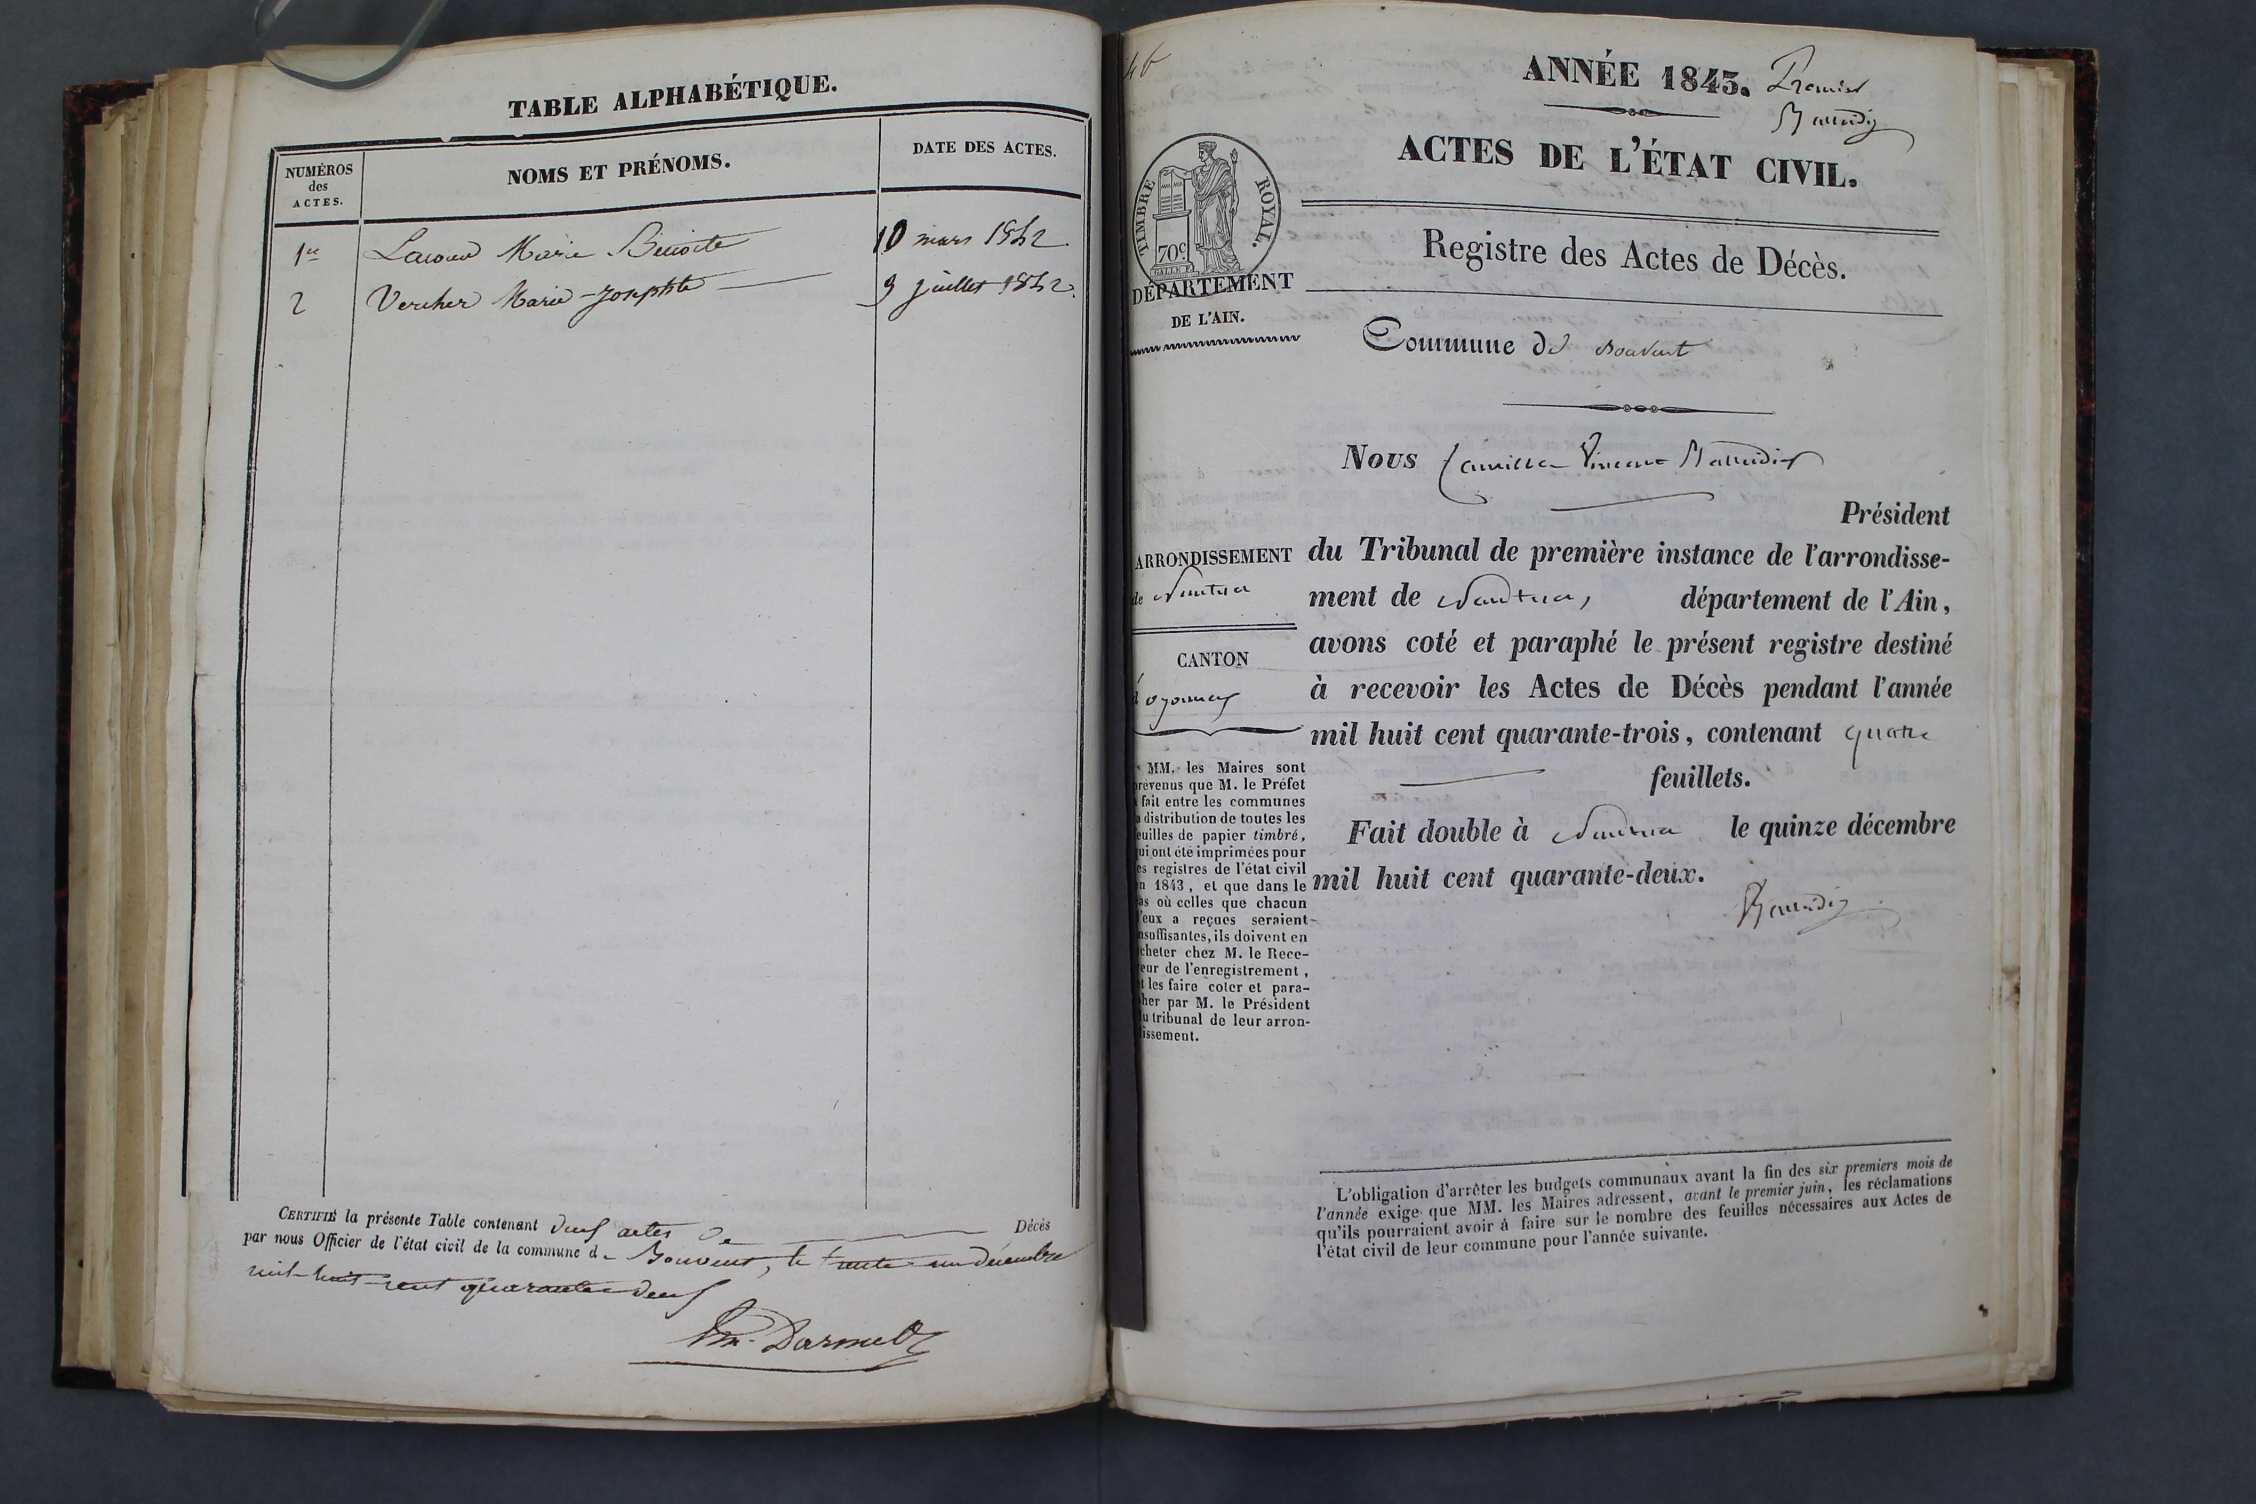 TABLE ALPHABÉTIQUE.
NUMÉROS
des
ACTES.
NOMS ET PRÉNOMS.
DATE DES ACTES.
1er Marie Benoite 10 mars 1842
2 Vercher Marie-Josephte 9 juillet 1842.
CERTIFIÉ la présente Table contenant deux actes de Décès
par nous Officier de l'état civil de la commune de Bouvent, le trente un décembre
mil-huit-cent quarante deux
46
ANNÉE 1843. Premier
ACTES DE L'ÉTAT CIVIL.
TIMBRE ROYAL.
70c
DÉPARTEMENT
DE L'AIN.
Registre des Actes de Décès.
Commune de Bouvent
Nous Camille Vincent
Président
ARRONDISSEMENT
de Nantua
CANTON
d'oyonnax
du Tribunal de première instance de l'arrondisse-
ment de Nantua, département de l'Ain,
avons coté et paraphé le présent registre destiné
à recevoir les Actes de Décès pendant l'année
mil huit cent quarante-trois, contenant quatre
feuillets.
Fait double à Nantua le quinze décembre
mil huit cent quarante-deux.
MM. les Maires sont
prévenus que M. le Préfet
a fait entre les communes
la distribution de toutes les
feuilles de papier timbré,
qui ont été imprimées pour
les registres de l'état civil
en 1843, et que dans le
cas où celles que chacun
d'eux a reçues seraient
insuffisantes, ils doivent en
acheter chez M. le Rece-
veur de l'enregistrement,
et les faire coter et para-
pher par M. le Président
du tribunal de leur arron-
dissement.
L'obligation d'arrêter les budgets communaux avant la fin des six premiers mois de
l'année exige que MM. les Maires adressent, avant le premier juin, les réclamations
qu'ils pourraient avoir à faire sur le nombre des feuilles nécessaires aux Actes de
l'état civil de leur commune pour l'année suivante.